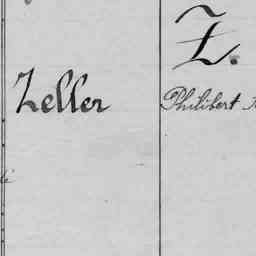 Z.
Zeller
Philibert